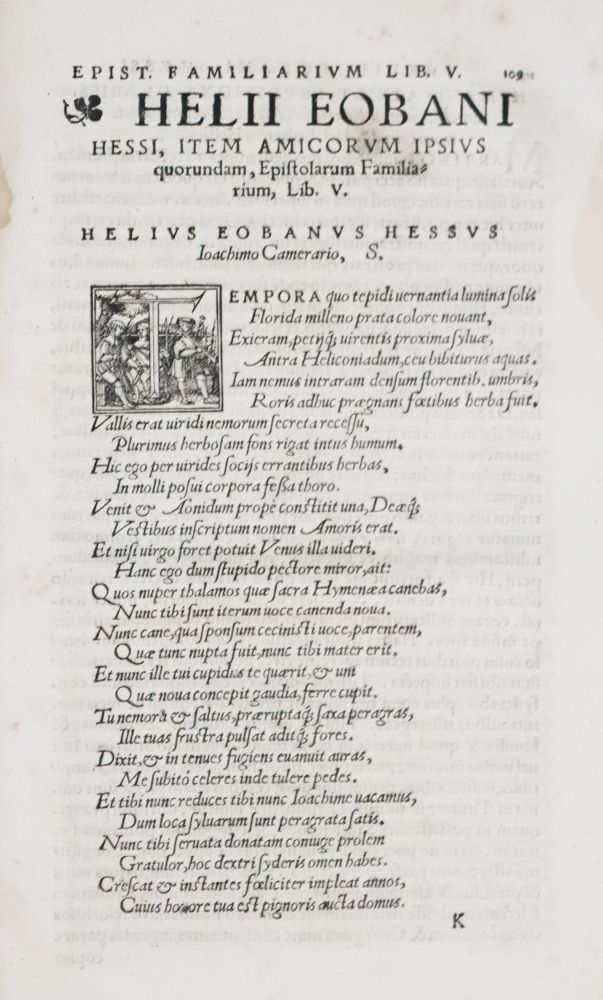 EPIST. FAMILIARIVM LIB. V. 109
HELII EOBANI
HESSI, ITEM AMICORVM IPSIVS
quorundam, Epiſtolarum Familia⸗
rium, Lib. V.
HELIVS EOBANVS HESSVS
Ioachimo Camerario, S.
TEMPORA quo tepidi uernantia lumina ſolis
Florida milleno prata colore nouant,
Exieram, petijq́; uirentis proxima ſyluæ,
Antra Heliconiadum, ceu bibiturus aquas.
Iam nemus intraram denſum florentib. umbris,
Roris adhuc prægnans fœtibus herba fuit.
Vallis erat uiridi nemorum ſecreta receſſu,
Plurimus herboſam fons rigat intus humum.
Hic ego per uirides ſocijs errantibus herbas,
In molli poſui corpora feſſa thoro.
Venit & Aonidum propè conſtitit una, Deæq́;
Veſtibus inſcriptum nomen Amoris erat.
Et niſi uirgo foret potuit Venus illa uideri.
Hanc ego dum ſtupido pectore miror, ait:
Quos nuper thalamos quæ ſacra Hymenæa canebas,
Nunc tibi ſunt iterum uoce canenda noua.
Nunc cane, qua ſponſum ceciniſti uoce, parentem,
Quæ tunc nupta fuit, nunc tibi mater erit.
Et nunc ille tui cupidus te quærit, & unà
Quæ noua concepit gaudia, ferre cupit.
Tu nemora & ſaltus, præruptaq́; ſaxa peragras,
Ille tuas fruſtra pulſat aditq́; fores.
Dixit, & in tenues fugiens euanuit auras,
Me ſubitò celeres inde tulere pedes.
Et tibi nunc reduces tibi nunc Ioachime uacamus,
Dum loca ſyluarum ſunt peragrata ſatis.
Nunc tibi ſeruata donatam coniuge prolem
Gratulor, hoc dextri ſyderis omen habes.
Creſcat & inſtantes fœliciter impleat annos,
Cuius honore tua eſt pignoris aucta domus.
K